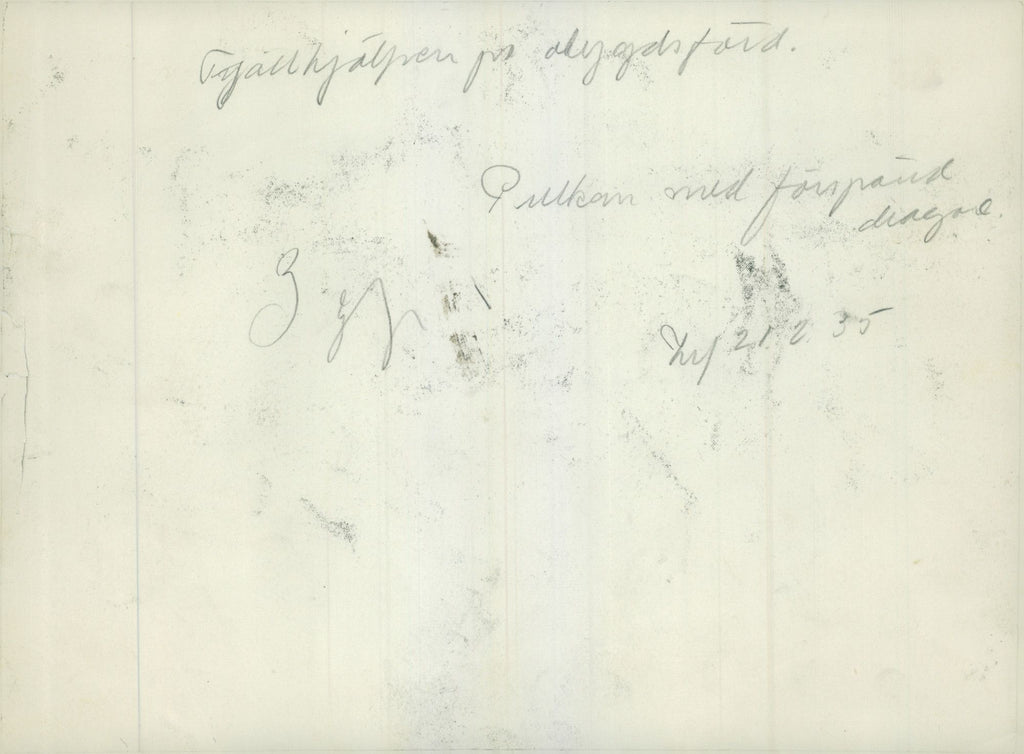 Fjällhjälpen på obygdsfärd.
Pulkan med förspänd
dragare.
3 sp
21.2.35